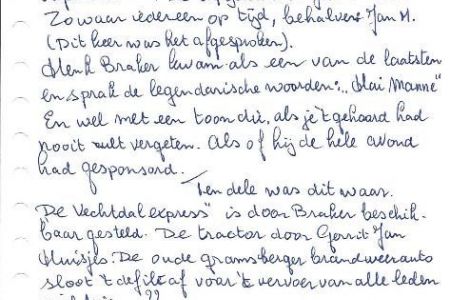 Zowaar iedereen op tijd, behalve Jan H.
(Dit keer was het afgesproken).
Henk Braker kwam als een van de laatsten
en sprak de legendarische woorden: "Mai Manne"
En wel met een toon die, als je 't gehoord had
nooit zult vergeten. Als of hij de hele avond
had gesponsord.
Ten dele was dit waar.
De Vechtdalexpress" is door Braker beschik-
baar gesteld. De tractor door Gerrit Jan
Huisjes. De oude gramsberger brandweerauto
sloot 't defilé af voor 't vervoer van alle leden